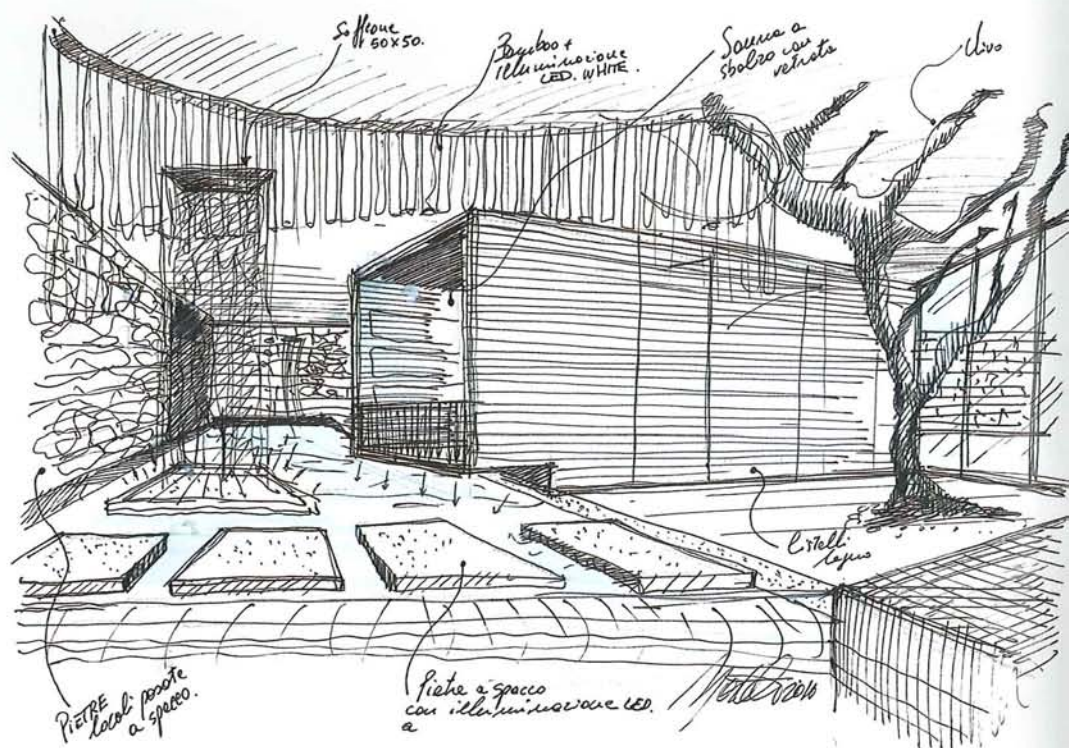 Soffione
50x50.
Bamboo +
illuminazione
LED. WHITE.
Sauna a
sbalzo con
vetrata
Ulivo
Listelli
legno
PIETRE
locali posate
a spacco.
Pietre a spacco
con illuminazione LED.
a
2010